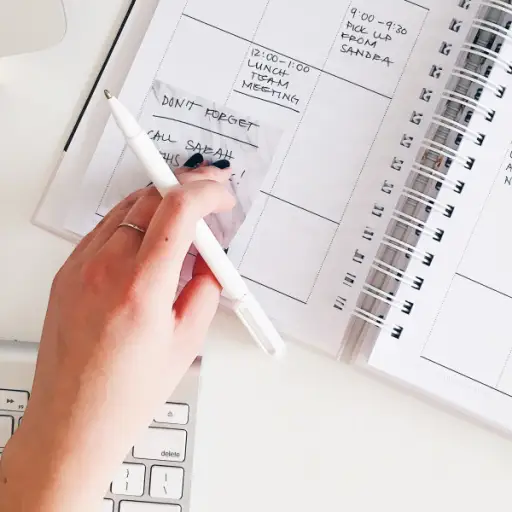 9:00-9:30
PICK UP
FROM
SANDRA
12:00-1:00
LUNCH
TEAM
MEETING
DON'T FORGET
CALL SARAH
delete